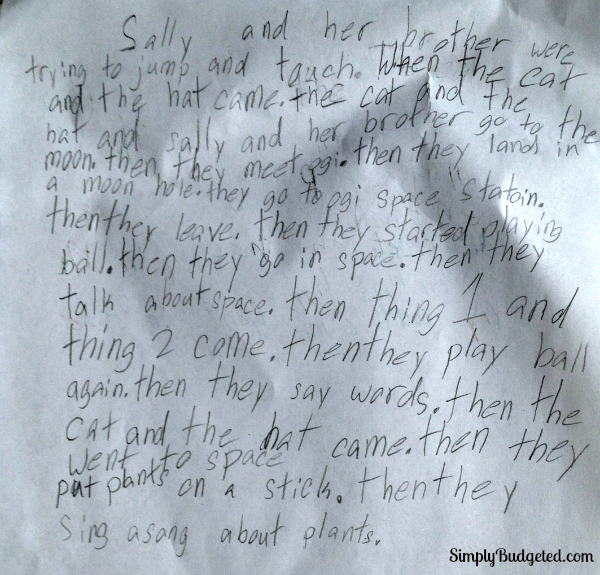 Sally and her brother were
trying to jump and tauch. When the cat
and the hat came. the cat and the
hat and sally and her brother go to the
moon. then they meet ogi. then they land in
a moon hole. they go to ogi space statoin.
thenthey leave. then they started playing
ball. then they go in space. then they
talk about space. then thing 1 and
thing 2 come. thenthey play ball
again. then they say words. then the
cat and the hat came. then they
went to space
put plants on a stick. thenthey
sing asong about plants.
SimplyBudgeted.com